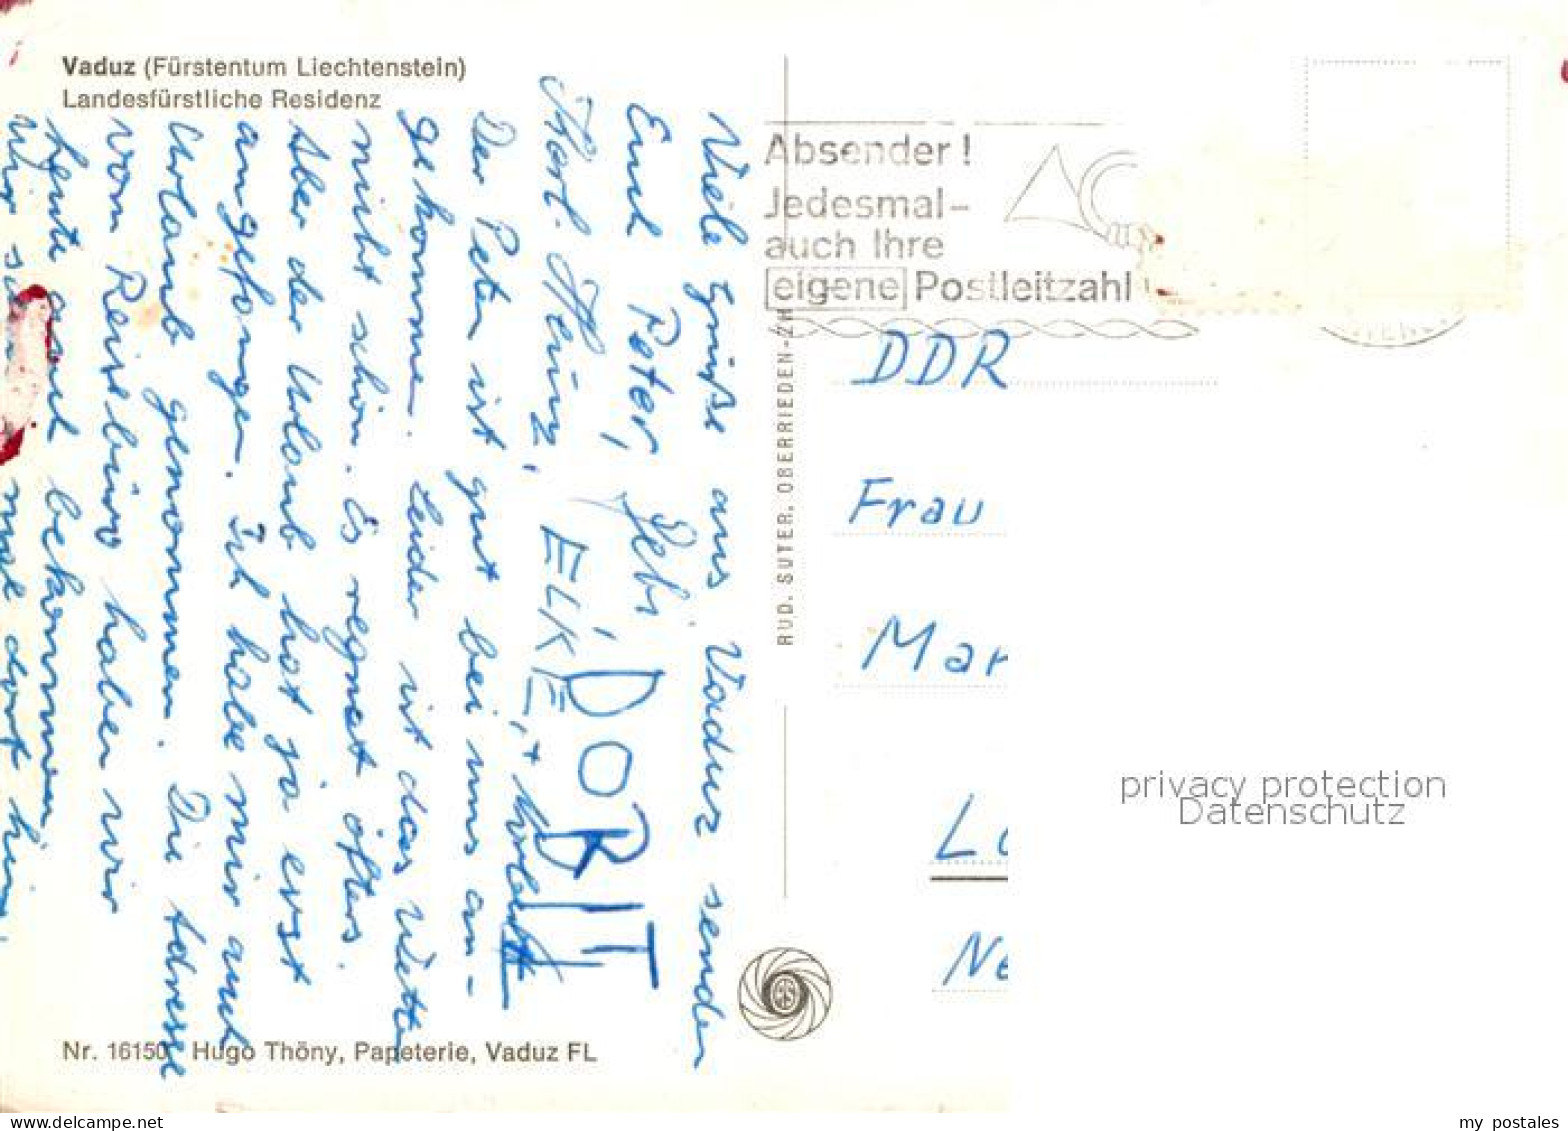 Vaduz (Fürstentum Liechtenstein)
Landesfürstliche Residenz
Viele Grüße aus Vaduz senden
Euch Peter, Gebi,
Heinz, ELKE, +
DORIT
Der Peter ist gut bei uns an-
gekommen. Leider ist das Wetter
nicht schön. Es regnet öfters.
Aber der Urlaub hat ja erst
angefangen. Ich habe mir auch
Urlaub genommen. Die Adresse
vom Reisebüro haben wir
heute auch bekommen
Wir mal dort hin
Nr. 16150 Hugo Thöny, Papeterie, Vaduz FL
RUD. SUTER, OBERRIEDEN-ZH
Absender!
Jedesmal-
auch Ihre
eigene Postleitzahl
DDR
Frau
Mar
L
Ne
privacy protection
Datenschutz
www.ansichtskartenversand.com
my_postales